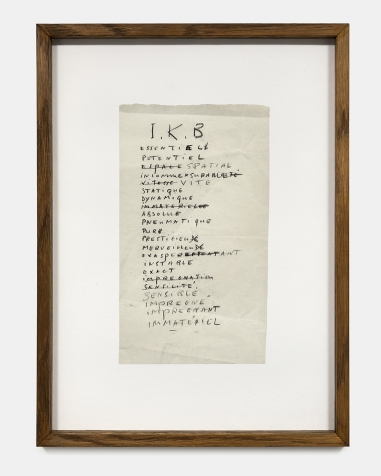 I.K.B
ESSENTIELE
POTENTIEL
ESPACE SPATIAL
INCOMMENSURABLE
VITESSE VITE
STATIQUE
DYNAMIQUE
IMMATERIELLE
ABSOLUE
PNEUMATIQUE
PURE
PRESTIGIEUX
MERVEILLEUX
EXASPERANT
INSTABLE
EXACT
IMPREGNATION
SENSILITÉ.
SENSIBLE.
IMPREGNÉ.
IMPREGNANT
IMMATÉRIEL